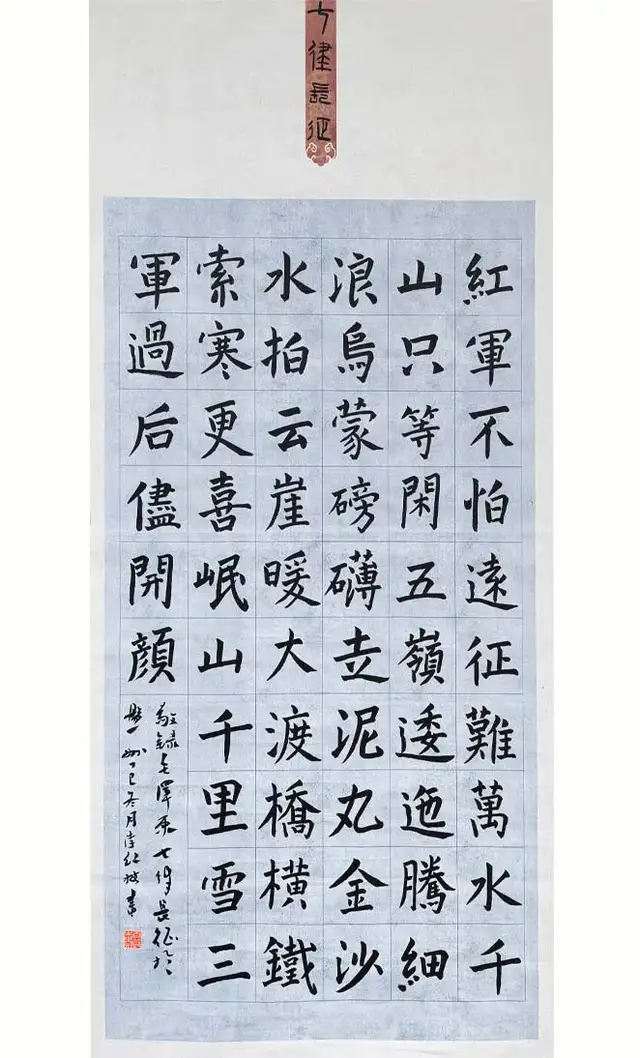 七律長征
紅軍不怕遠征難萬水千
山只等閑五嶺逶迤騰細
浪烏蒙磅礴走泥丸金沙
水拍云崖暖大渡橋橫鐵
索寒更喜岷山千里雪三
軍過后儘開顔
敬録毛澤東七律長征於
丁巳冬月李紅波書